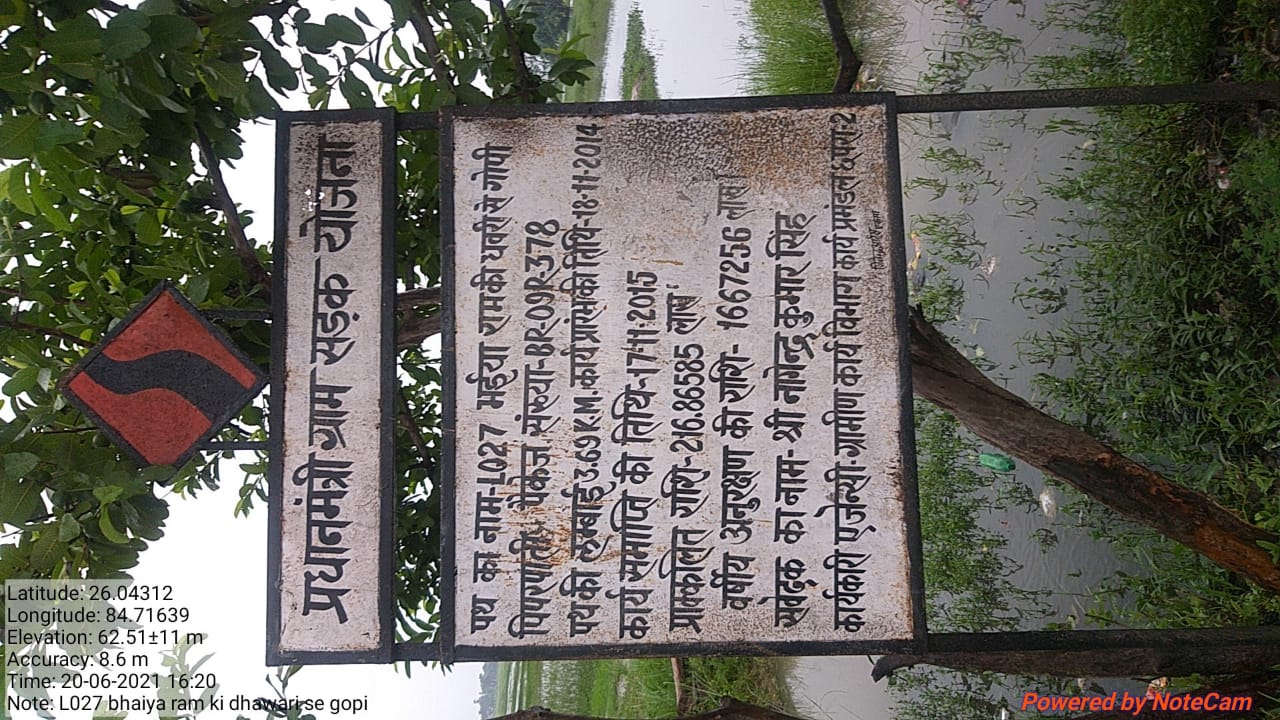 प्रधानमंत्री ग्राम सड़क योजना
पथ का नाम-L027 मईया राम की धवरी से गोपी
पिपरपाती, पैकेज संख्या-BR-09R-378
पथ की लम्बाई 3.69K.M.कार्य प्रारंभ की तिथि-18-11-2014
कार्य समाप्ति की तिथि-17-11-2015
प्राक्कलित राशि-216.86585 लाख
वर्षीय अनुरक्षण की राशि- 1667256 लाख
संवेदक का नाम-श्री नागेन्द्र कुमार सिंह
कार्यकारी एजेन्सी-ग्रामीण कार्य विभाग कार्य प्रमंडल छपरा-2
Latitude: 26.04312
Longitude: 84.71639
Elevation: 62.51±11 m
Accuracy: 8.6 m
Time: 20-06-2021 16:20
Note: L027 bhaiya ram ki dhawari se gopi
Powered by NoteCam